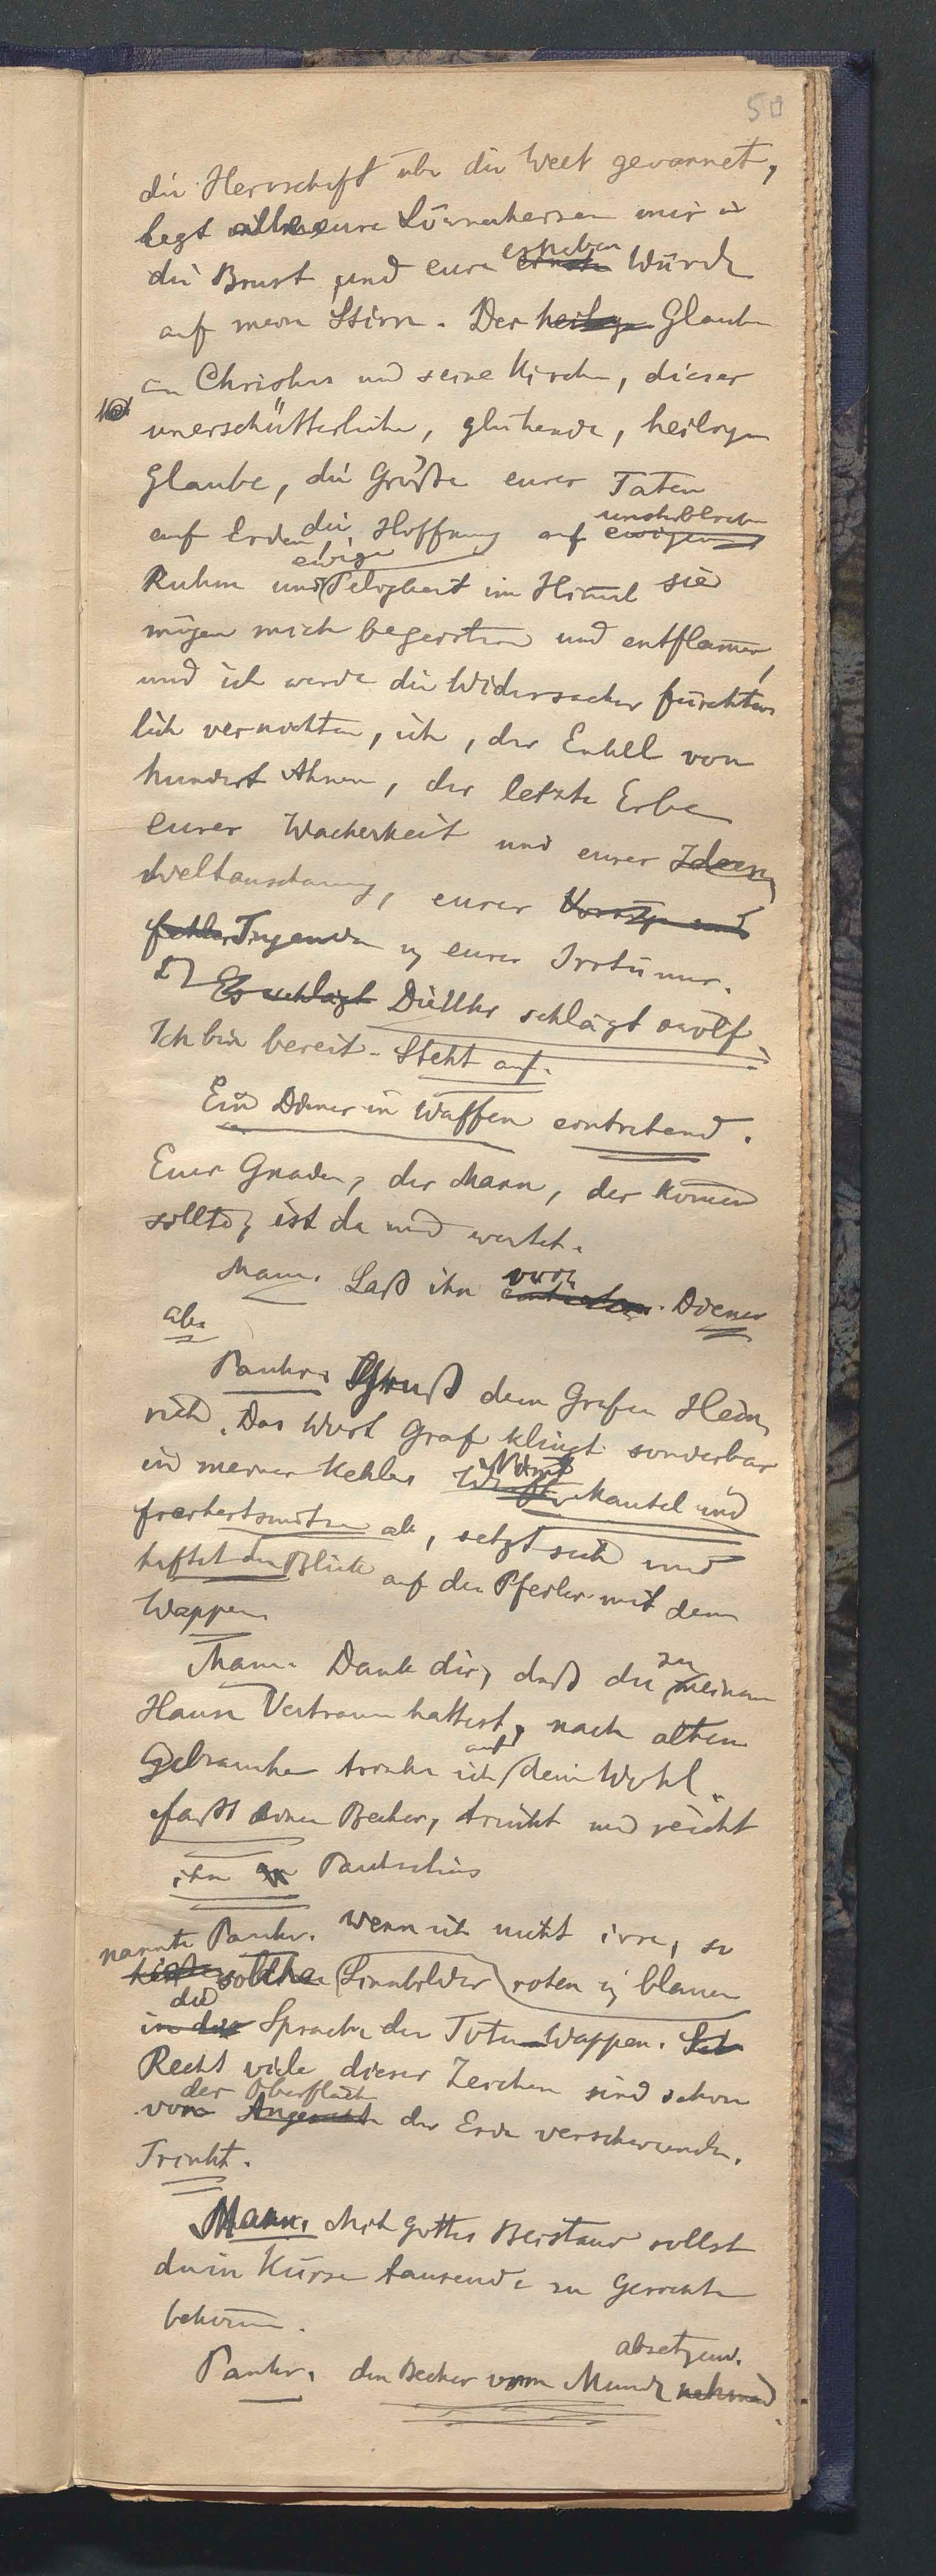 50
die Herrschaft über die Welt gewannet,
legt alle eure Löwenherzen mir in
die Brust und eure ernste erhabene Würde
auf meine Stirn. Der heilige Glaube
an Christus und seine Kirche, dieser
unerschütterliche, glühende, heilige
Glaube, die Größe eurer Taten
auf Erden die Hoffnung auf ewigen unsterblichen
Ruhm und ewige Seligkeit im Himmel sie
mögen mich begeistern und entflammen,
und ich werde die Widersacher fürchter
lich vernichten, ich, der Enkel von
hundert Ahnen, der letzte Erbe
eurer Wackerkeit und eurer Ideen
Weltanschauung, eurer Vorzüge und
Fehler Tugenden u eurer Irrtümer.
Es schlägt Die Uhr schlägt zwölf.
Ich bin bereit. Steht auf.
Ein Diener in Waffen eintretend.
Euer Gnaden, der Mann, der kommen
sollte, ist da und wartet.
Mann. Laß ihn eintreten vor. Diener
ab.
Pankr. Gruß dem Grafen Hein
rich. Das Wort Graf klingt sonderbar
in meiner Kehle. Wirft Nimmt Mantel und
Freiheitsmütze ab, setzt sich und
heftet den Blick auf den Pfeiler mit dem
Wappen
Mann. Dank dir, daß du zu meinem
Hause Vertrauen hattest, nach altem
Gebrauche trinke ich auf dein Wohl.
Faßt einen Becher, trinkt und reicht
ihn Pankratius
Pankr. Wenn ich nicht irre, so
nannte solche Sinnbilder roten u blauen
in der die Sprache der Toten Wappen.
Recht viele dieser Zeichen sind schon
von Angesicht der Oberfläche der Erde verschwunden.
Trinkt.
Mann. Mit Gottes Beistand sollst
du in Kürze tausende zu Gesichte
bekommen.
Pankr. den Becher vom Munde nehmend absetzend.